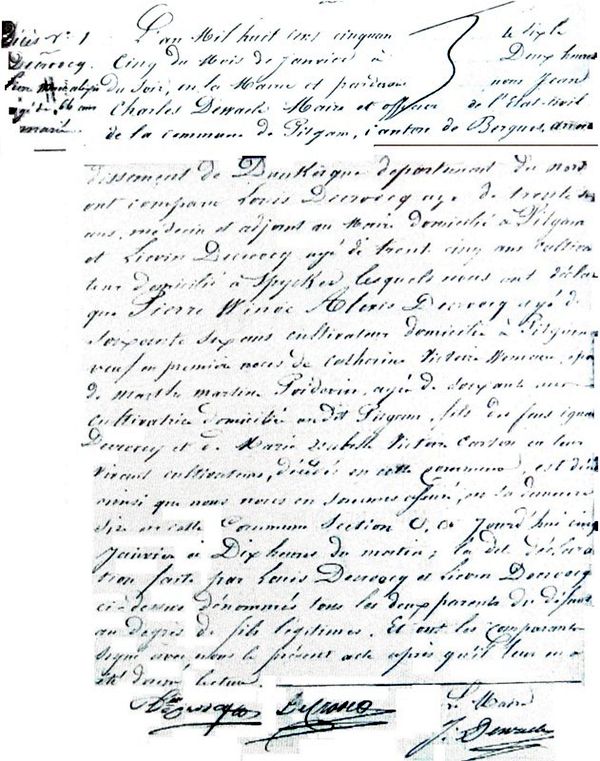 Décès N° 1
Decrocq
Pierre Winoc Alexis
âgé de 66 ans
marié
L'an Mil huit cent cinquante six le
Cinq du Mois de Janvier à Deux heures
du soir, en la Mairie et pardevant nous Jean
Charles Dewaele Maire et officier de l'Etat-Civil
de la commune de Pitgam, canton de Bergues, arron
dissement de Dunkerque département du nord
ont comparu Louis Decrocq agé de trente six
ans, médecin et adjoint au Maire domicilié à Pitgam
et Lievin Decrocq agé de trent cinq ans cultiva
teur domicilié à Spycker lesquels nous ont déclaré
que Pierre Winoc Alexis Decrocq agé de
soixante six ans cultivateur domicilié à Pitgam
veuf en première noces de Catherine Victoire epoux
de marthe martine agée de soixante
cultivatrice domiciliée audit Pitgam, fils des feus
Decrocq et de Marie Isabelle Victoire Carton en leur
vivant cultivateurs, décédé en cette commune, est décédé
ainsi que nous nous en sommes assuré, en sa demeure
size en cette Commune Section C, ce Jourd'hui cinq
Janvier à Dix heures du matin; la dite déclara
tion faite par Louis Decrocq et Lievin Decrocq
ci-dessus dénommés tous les deux parents du défunt
au degrés de fils légitimes. Et ont les comparants
signé avec nous le présent acte après qu'il leur en a
été donné lecture.
Decrocq Decrocq
Le Maire
J. Dewaele